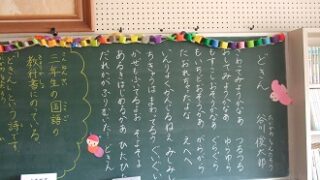 どきん
たにかわしゅんたろう
谷川俊太郎
さわってみようかなあ つるつる
おしてみようかなあ ゆらゆら
もすこしおそうかなあ ぐらぐら
もいちどおそうかあ がらがら
たおれちゃったよなあ えへへ
いんりょくかんじるねえ みしみし
ちきゅうはまわってるう ぐいぐい
かぜもふいてるよお そよそよ
あるきはじめるかあ ひたひ
だれかがふりむいた！ どきん
三年生の国語の
教科書にのっている
「どきん」という詩です。